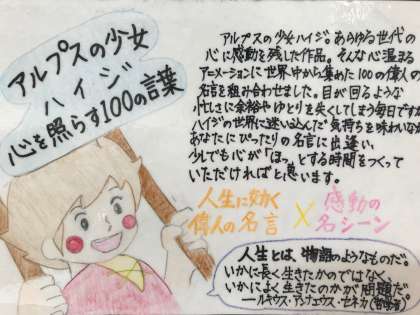 アルプスの少女
ハイジ
心を照らす100の言葉
アルプスの少女ハイジ。あらゆる世代の
心に感動を残した作品。そんな心温まる
アニメーションに世界中から集めた100の偉人の
名言を組み合わせました。目が回るような
忙しさに余裕やゆとりを失くしてしまう毎日ですが、
ハイジの世界に迷い込んだ気持ちを味わいながら
あなたにぴったりの名言に出逢い、
少しでも心が「ほっ」とする時間をつくって
いただければと思います。
人生に効く
偉人の名言
×
感動の
名シーン
人生とは、物語のようなものだ。
いかに長く生きたかのではなく、
いかによく生きたのかが問題だ
ールキウス・アンナェウス・セネカ(哲学者)